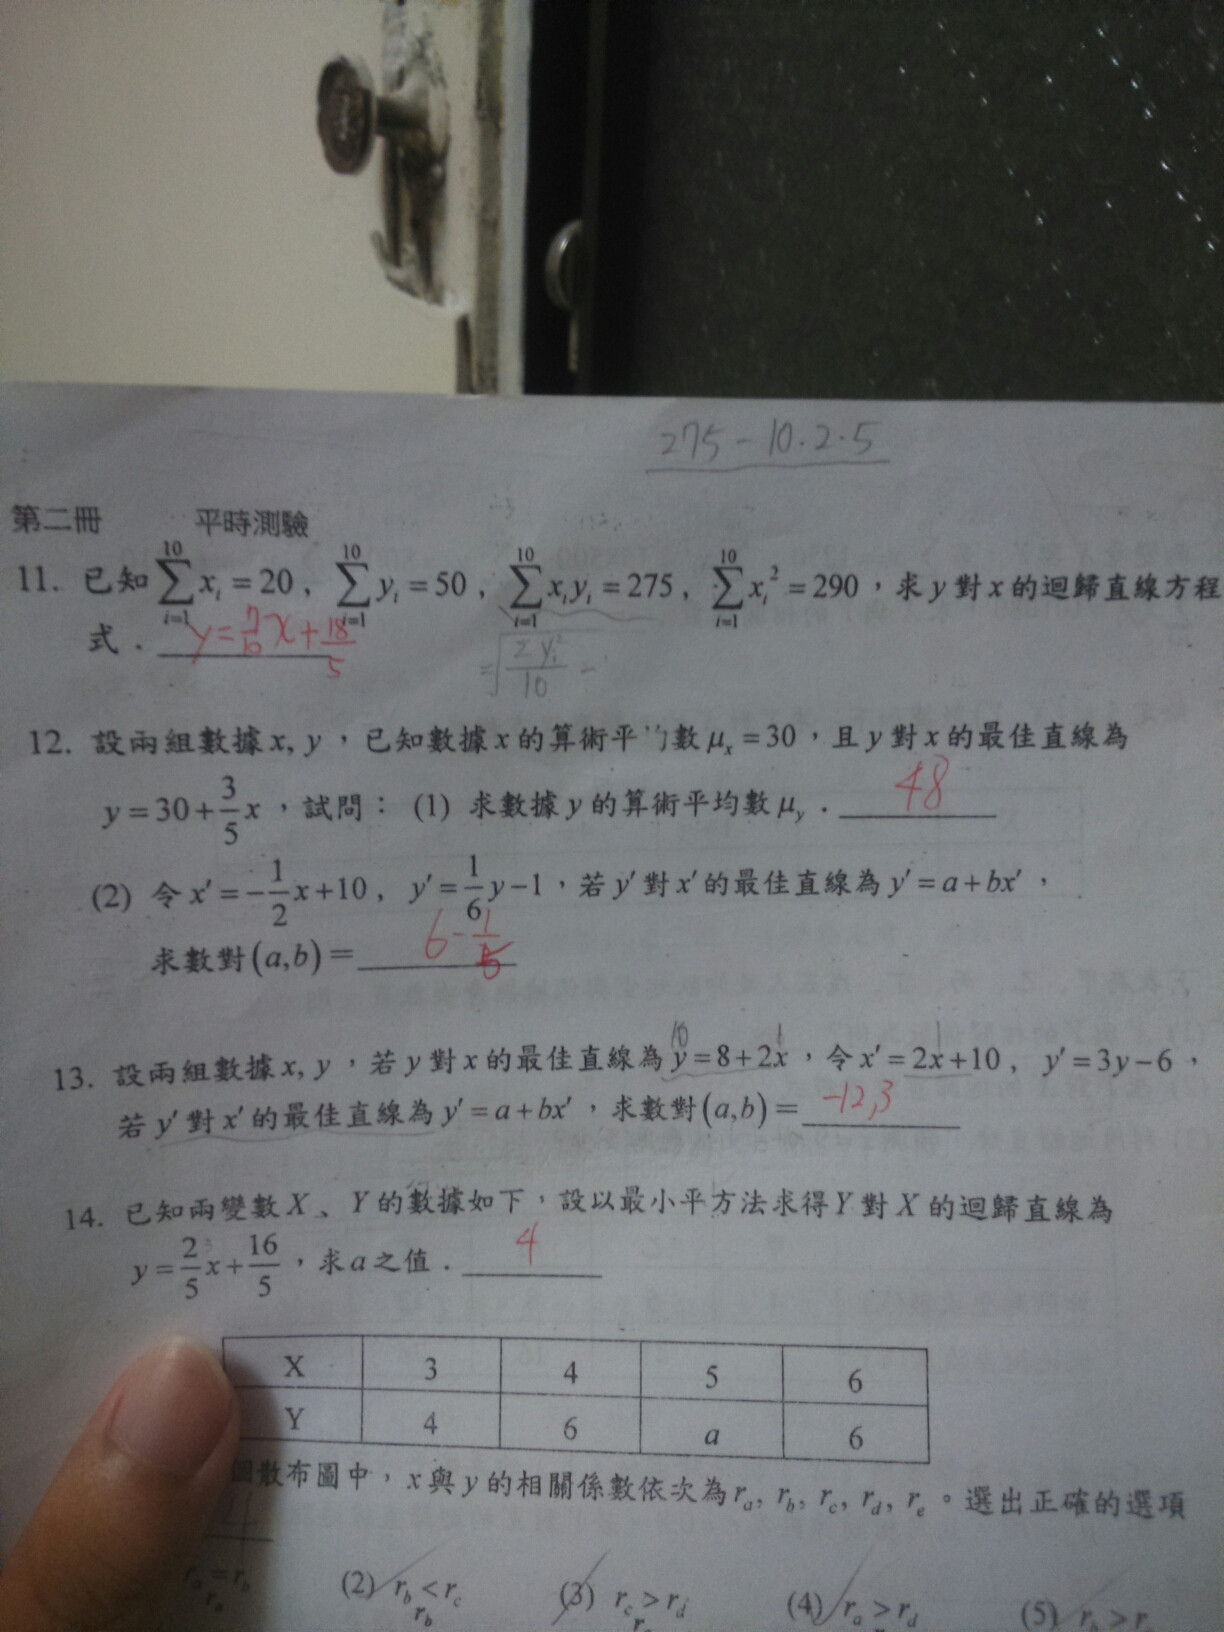 275 - 10.2.5
第二冊 平時測驗
11. 已知 \sum_{i=1}^{10} x_i = 20, \sum_{i=1}^{10} y_i = 50, \sum_{i=1}^{10} x_i y_i = 275, \sum_{i=1}^{10} x_i^2 = 290,求 y 對 x 的迴歸直線方程
式. y = 7/10 x + 18/5
= √ Σ y_i^2 / 10 -
12. 設兩組數據 x, y,已知數據 x 的算術平均數 μ_x = 30,且 y 對 x 的最佳直線為
y = 30 + 3/5 x,試問: (1) 求數據 y 的算術平均數 μ_y. 48
(2) 令 x' = -1/2 x + 10, y' = 1/6 y - 1,若 y' 對 x' 的最佳直線為 y' = a + bx',
求數對 (a,b) = 6 - 1/5
10 1 1
13. 設兩組數據 x, y,若 y 對 x 的最佳直線為 y = 8 + 2x,令 x' = 2x + 10, y' = 3y - 6,
若 y' 對 x' 的最佳直線為 y' = a + bx',求數對 (a,b) = -12,3
14. 已知兩變數 X、Y 的數據如下,設以最小平方法求得 Y 對 X 的迴歸直線為
y = 2/5 x + 16/5,求 a 之值. 4
X 3 4 5 6
Y 4 6 a 6
個散布圖中,x 與 y 的相關係數依次為 r_a, r_b, r_c, r_d, r_e。選出正確的選項
r_a = r_b (2) r_b < r_c (3) r_c > r_d (4) r_a > r_d (5) r_b >